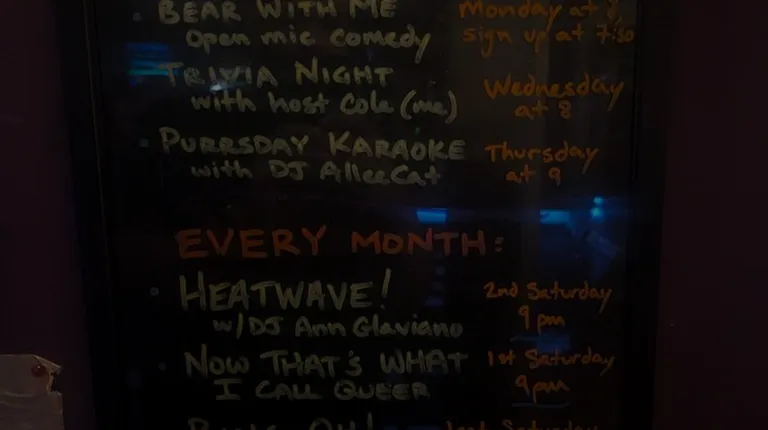 BEAR WITH ME Monday at 8,
Open mic comedy sign up at 7:30
TRIVIA NIGHT Wednesday
with host Cole (me) at 8
PURRSDAY KARAOKE Thursday
with DJ AlleeCat at 9
EVERY MONTH:
HEATWAVE! 2nd Saturday
w/DJ Ann Glaviano 9pm
NOW THAT'S WHAT 1st Saturday
I CALL QUEER 9pm
Saturday